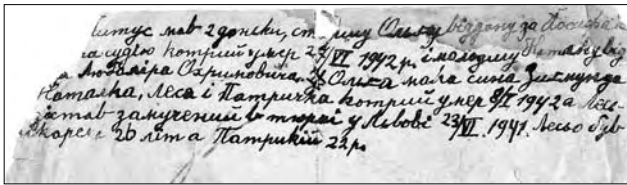 Титус мав 2 доньки, старшу Ольгу віддону за Йосифа
за судею котрий умер 24/VI 1942 р. і молодшу Наталю від
за Любоміра Охримовича. Ольга мала сина Зигмунда
Наталка, Леся і Патрика котрий умер 8/I 1942 а Лесь
зістав замучений в тюрмі у Львові 23/VI. 1941. Лесьо був
лікарем 26 літ а Патрикій 22 р.